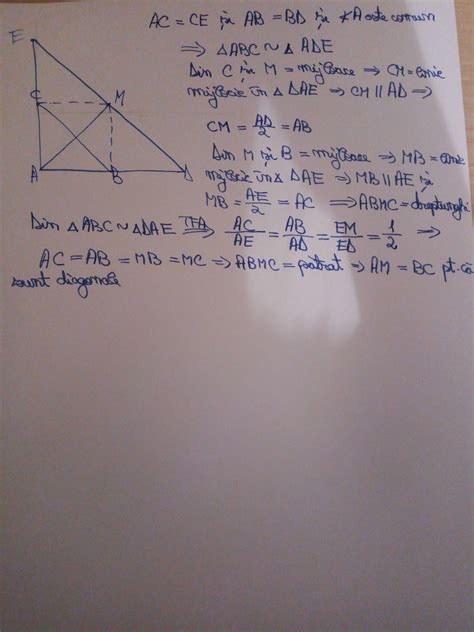 AC = CE și AB = BD și ∢A este comun
⇒ △ABC ~ △ADE
Din C și M = mijloace ⇒ CM = linie
mijlocie în △DAE ⇒ CM ∥ AD ⇒
CM = AD/2 = AB
Din M și B = mijloace ⇒ MB = linie
mijlocie în △DAE ⇒ MB ∥ AE și
MB = AE/2 = AC ⇒ ABMC = dreptunghi
Din △ABC ~ △DAE TFA⇒ AC/AE = AB/AD = EM/ED = 1/2 ⇒
AC = AB = MB = MC ⇒ ABMC = pătrat ⇒ AM = BC pt. că
sunt diagonale
E
C
M
A
B
D